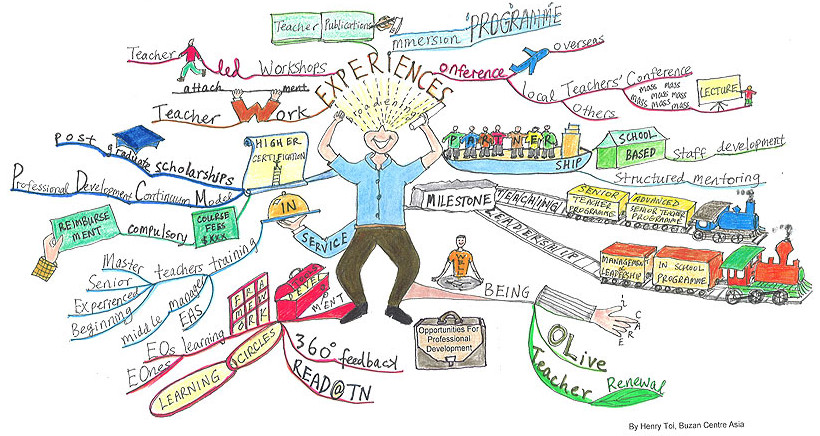 Teacher Publications
Immersion PROGRAMME
Teacher
Led Workshops
EXPERIENCES
Conference
overseas
local Teachers' Conference
Others
mass mass
mass mass mass
mass mass mass
LECTURE
attachment
Teacher Work
Post
graduate scholarships
HIGHER
CERTIFICATION
Professional Development Continuum Model
PARTNER
SHIP
SCHOOL
BASED
Staff development
Structured mentoring
REIMBURSE
MENT
compulsory
COURSE
FEES
$XXX
IN
SERVICE
training
Master teachers
Senior
Experienced
Beginning
middle manager
EAS
MILESTONE
TEACHING
SENIOR
TEACHER
PROGRAMME
ADVANCED
SENIOR TEACHER
PROGRAMME
LEADERSHIP
MANAGEMENT
LEADERSHIP
IN SCHOOL
PROGRAMME
WELL
BEING
I CARE
OLive
Teacher Renewal
FRAMEWORK
DEVELOPMENT
EOs learning
EOnes
LEARNING CIRCLES
360° feedback
READ@TN
Opportunities For
Professional
Development
By Henry Toi, Buzan Centre Asia